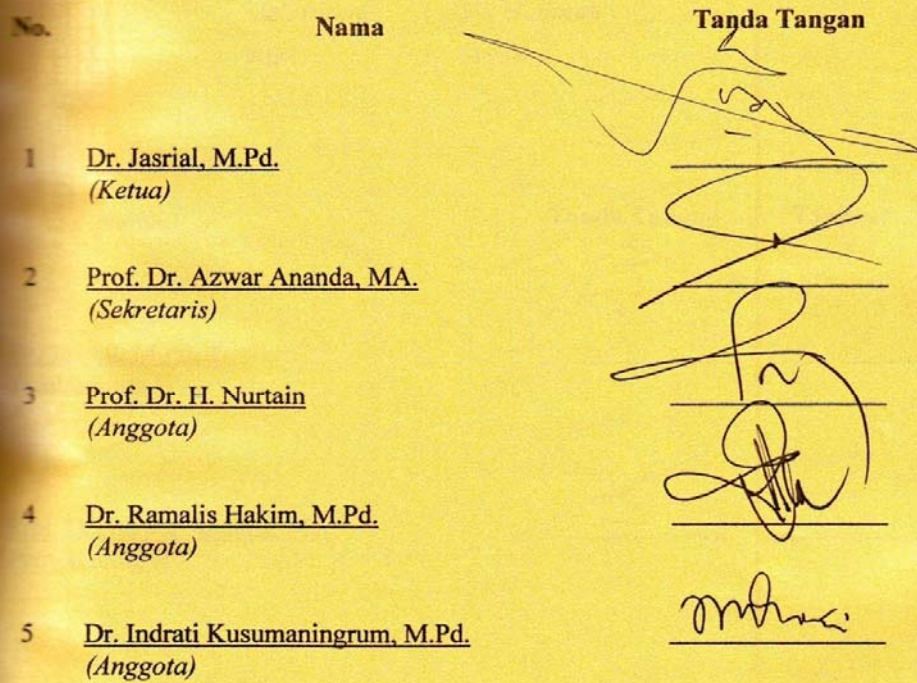 No. Nama Tanda Tangan
1 Dr. Jasrial, M.Pd.
(Ketua)
2 Prof. Dr. Azwar Ananda, MA.
(Sekretaris)
3 Prof. Dr. H. Nurtain
(Anggota)
4 Dr. Ramalis Hakim, M.Pd.
(Anggota)
5 Dr. Indrati Kusumaningrum, M.Pd.
(Anggota)